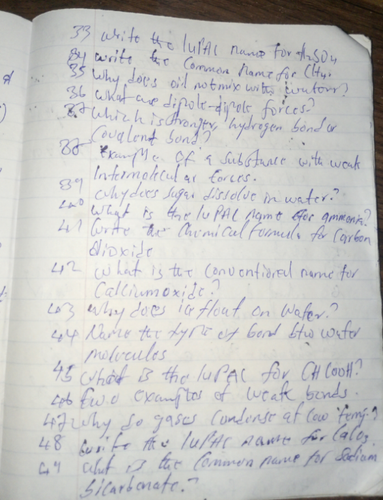 33 Write the IUPAC name for H2SO4
34 write the Common Name for CH4.
35 Why does oil not mix with water?
36 what are dipole-dipole forces?
37 which is stronger, hydrogen bond or
Covalent bond?
38 example of a substance with weak
Intermolecular forces.
39 why does sugar dissolve in water?
40 what is the IUPAC Name for ammonia?
41 Write the Chemical formula for Carbon
dioxide
42 what is the Conventional name for
Calcium oxide?
43 why does ice float on water?
44 Name the type of bond btw water
molecules
45 what is the IUPAC for CH3COOH?
46 two examples of weak bonds.
47 why so gases condense at low temp?
48 write the IUPAC name for
49 what is the Common name for Sodium
bicarbonate?